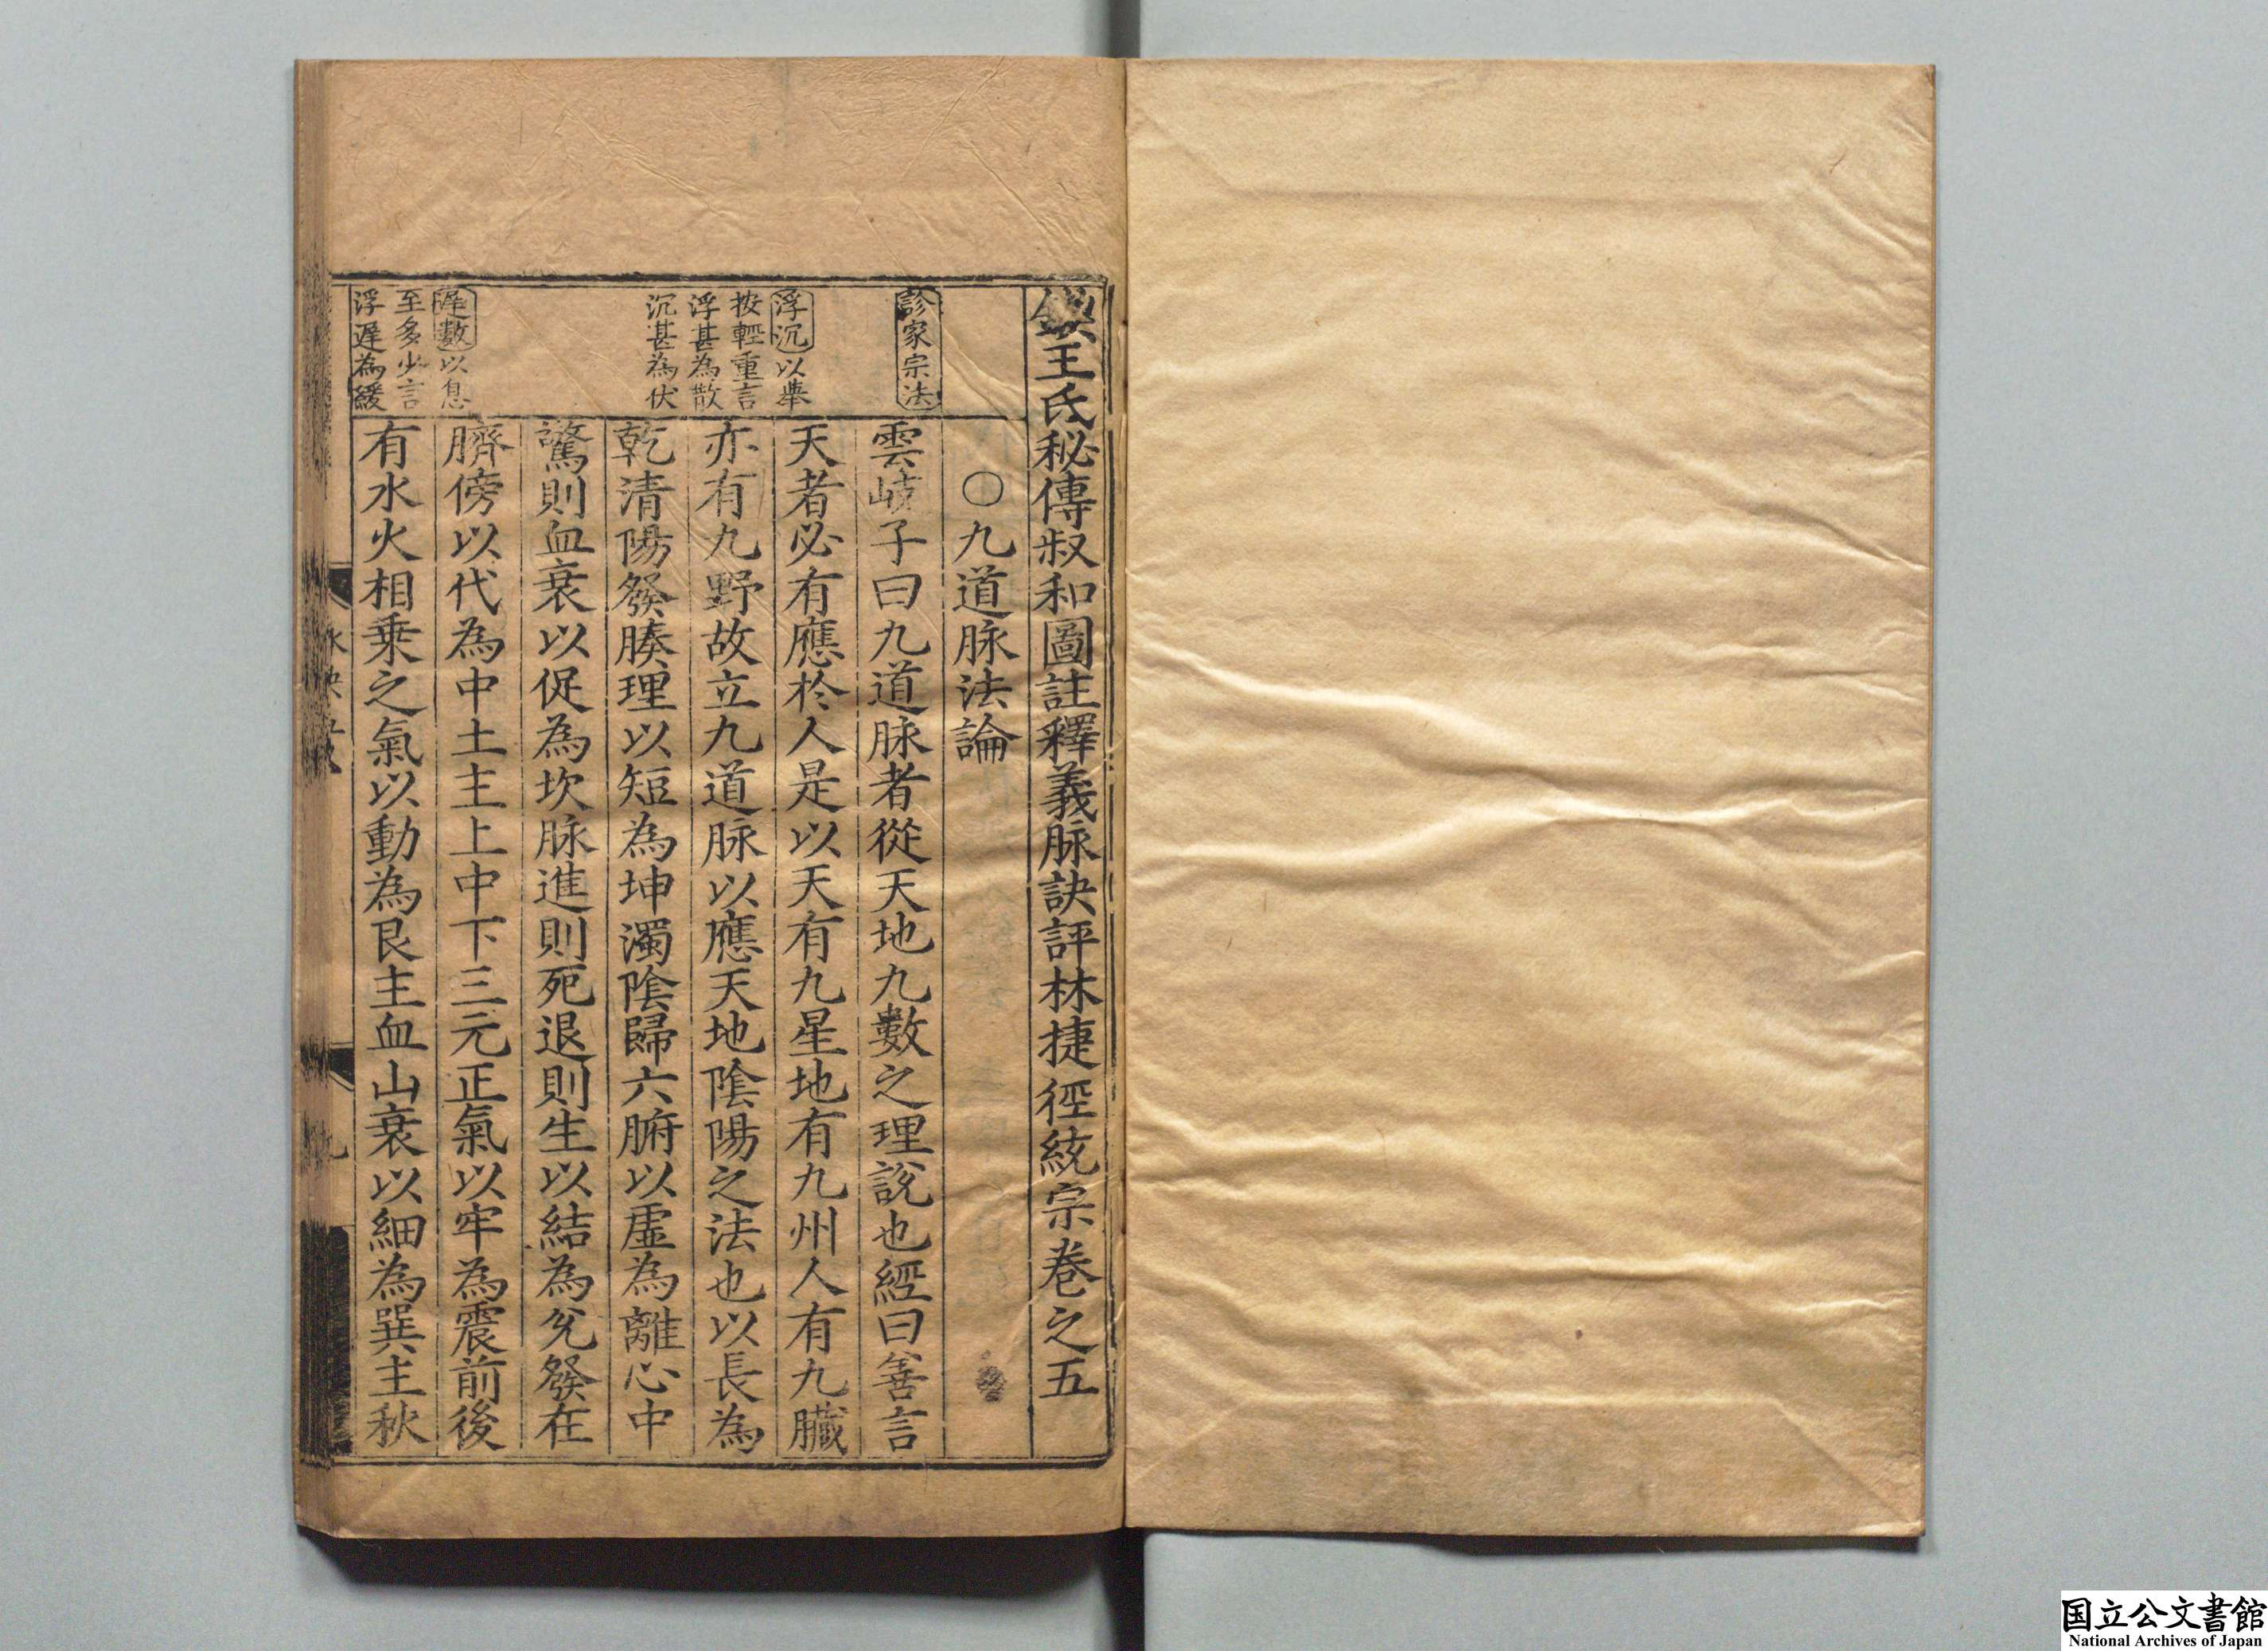 鐫王氏秘傳叔和圖註釋義脉訣評林捷徑統宗卷之五
○九道脉法論
診家宗法
雲岐子曰九道脉者從天地九數之理說也經曰善言
天者必有應於人是以天有九星地有九州人有九臟
亦有九野故立九道脉以應天地陰陽之法也以長為
乾清陽發腠理以短為坤濁陰歸六腑以虛為離心中
驚則血衰以促為坎脉進則死退則生以結為兌發在
臍傍以代為中土主上中下三元正氣以牢為震前後
有水火相乗之氣以動為艮主血山衰以細為巽主秋
浮沉以舉
按輕重言
浮甚為散
沉甚為伏
遲數以息
至多少言
浮遲為緩
国立公文書館
National Archives of Japan